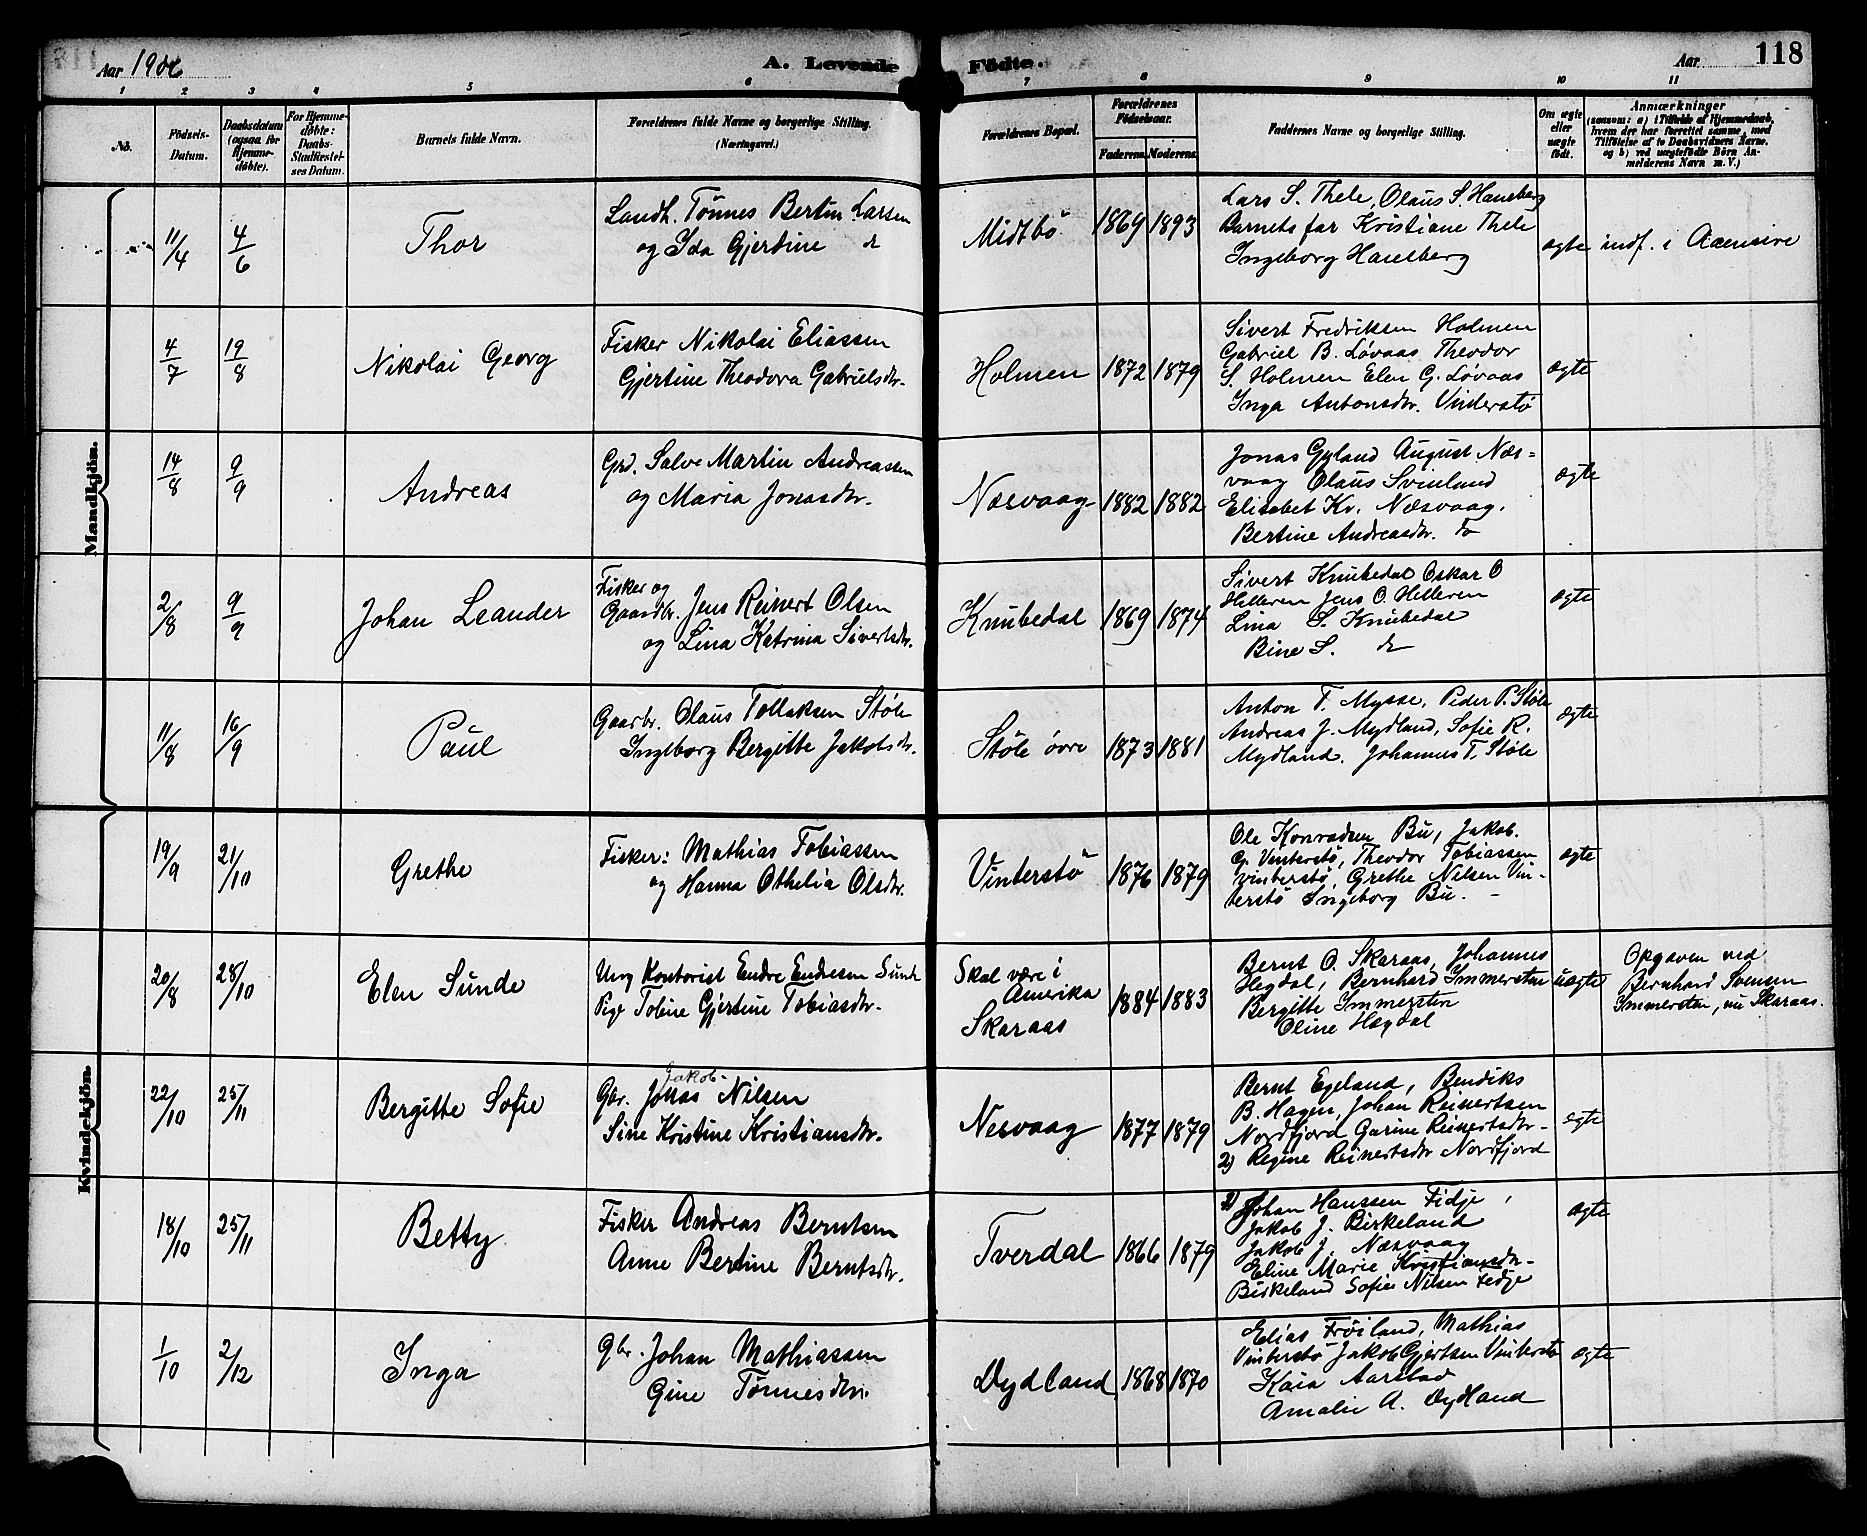 Aar 1906
A. Levende Fødte.
Aar
118
1 2 3 4 5 6 7 8 9 10 11
No.
Fødsels-Datum.
Daabsdatum (ogsaa for Hjemmedøbte).
For Hjemmedøbte: Daabs-Stadfæstelses Datum.
Barnets fulde Navn.
Forældrenes fulde Navne og borgerlige Stilling. (Næringsvei.)
Forældrenes Bopæl.
Forældrenes Fødselsaar.
Faderens. Moderens.
Faddernes Navne og borgerlige Stilling.
Om ægte eller uægte født.
Anmærkninger
(saasom: a) i Tilfælde af Hjemmedaab,
hvem der har forrettet samme, med
Tilføielse af to Daabsvidners Navne,
og b) ved uægtefødte Børn An-
melderens Navn m. V.)
Mandkjøn.
11/4 4/6 Thor
Landh. Tønnes Bertin Larsen
og Ida Gjertine
Midtbø 1869 1893
Lars S. Thele, Olaus S. Haneberg
Barnets far Kristiane Thele
Ingeborg Haneberg
ægte
indf. i
4/7 19/8 Nikolai Georg
Fisker Nikolai Eliassen
Gjertine Theodora Gabrielsdtr.
Holmen 1872 1879
Sivert Fredriksen Holmen
Gabriel B. Løvaas Theodor
S. Holmen Elen G. Løvaas
Inga Antonsdtr. Vinterstø
ægte
14/8 9/9 Andreas
Grd. Salve Martin Andreassen
og Maria Jonasdtr.
Næsvaag 1882 1882
Jonas Gyland August Næs-
vaag Olaus Svinland
Elisabet Kr. Næsvaag.
Bertine Andreasdtr. do
ægte
2/8 9/9 Johan Leander
Fisker og
Gaardbr. Jens Reinert Olsen
og Lina Katrina Sivertsdtr.
Knubedal 1869 1874
Sivert Knubedal Oskar O
Helleren Jens O. Helleren
Lina S. Knubedal
Bine S. do
ægte
11/8 16/9 Paul
Gaarbr. Olaus Tollaksen Støle
Ingeborg Bergitte Jakobsdtr.
Støle øvre 1873 1881
Anton T. Mysse, Peder P. Støle
Andreas J. Mydland, Sofie R.
Mydland. Johannes T. Støle
ægte
Kvindekjøn.
19/9 21/10 Grethe
Fisker: Mathias Tobiassen
og Hanna Othelia Olsdtr.
Vinterstø 1876 1879
Ole Konradsen Bu, Jakob.
G. Vinterstø, Theodor Tobiassen
Vinterstø, Grethe Nilsen Vin-
terstø Ingeborg Bu.
ægte
20/8 28/10 Elen Sunde
Ung Kontorist Endre Endresen Sunde
Pige Tobine Gjertine Tobiasdtr.
Skal være i
Amerika
Skaraas
1884 1883
Bernt O. Skaraas, Johannes
Hegdal, Bernhard Immersten
Bergitte Immersten
Oline Hægdal
uægte
Opgaven ved
Bernhard Svensen
Immersten, nu Skaraas.
22/10 25/11 Bergitte Sofie
Jakob
Gbr. Jonas Nilsen
Sine Kristine Kristiansdtr.
Nesvaag 1877 1879
Bernt Egeland, Bendiks
B. Hagen, Johan Reinertsen
Nordfjord Garine Reinertsdtr.
2) Regine Reinertsdtr Nordfjord
ægte
18/10 25/11 Betty
Fisker Andreas Berntsen
Anne Bertine Berntsdtr.
Tverdal 1866 1879
Johan Hanssen Fidje,
Jakob J. Birkeland
Jakob J. Næsvaag
Eline Marie Kristiansdtr.
Birkeland Sofie Nilsen Fedje
ægte
1/10 2/12 Inga
Gbr. Johan Mathiassen
Gine Tønnesdtr.
Dydland 1868 1870
Elias Frøiland, Mathias
Vinterstø Jakob Gjertsen Vinterstø
Kaia Aarstad
Amalie A. Dydland
ægte